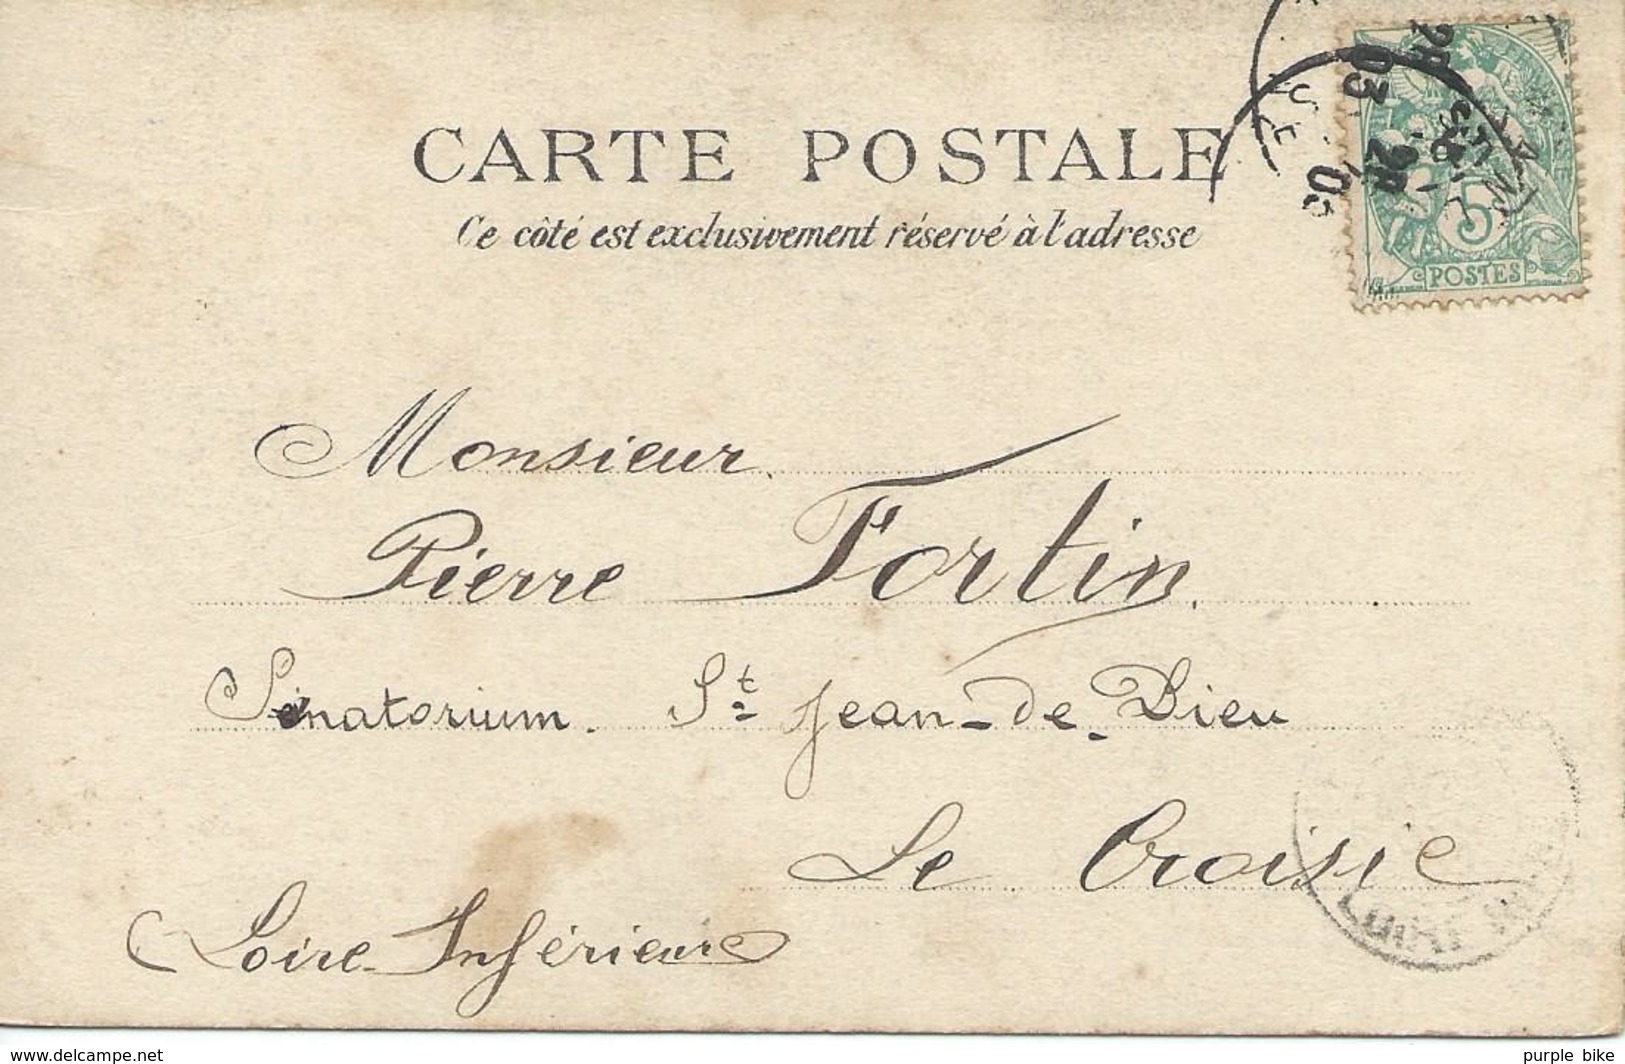 CARTE POSTALE
Ce côté est exclusivement réservé à l'adresse
5
POSTES
03
Monsieur
Pierre Fortin.
Sanatorium. St Jean-de-Dieu
Le Croisic
Loire-Inférieure
www.delcampe.net
purple bike